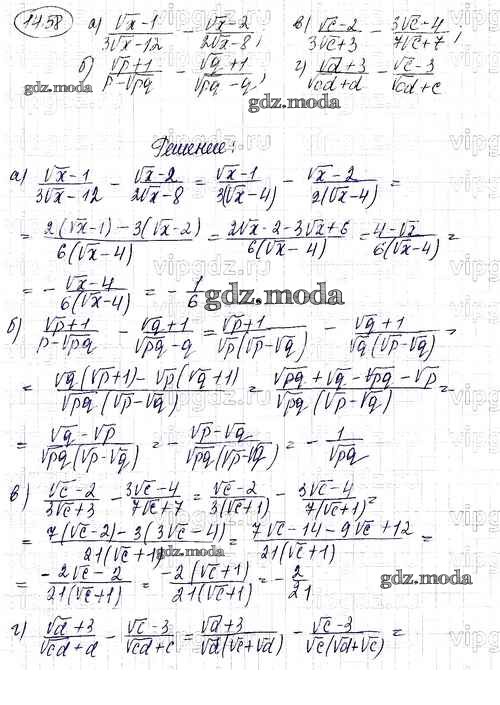 1458 а) (√x-1)/(3√x-12) - (√x-2)/(2√x-8); в) (√c-2)/(3√c+3) - (3√c-4)/(7√c+7);
б) (√p+1)/(p-√pq) - (√q+1)/(√pq-q); г) (√d+3)/(√cd+d) - (√c-3)/(√cd+c)
gdz.moda
Решение:
а) (√x-1)/(3√x-12) - (√x-2)/(2√x-8) = (√x-1)/(3(√x-4)) - (√x-2)/(2(√x-4)) =
= (2(√x-1)-3(√x-2))/(6(√x-4)) = (2√x-2-3√x+6)/(6(√x-4)) = (4-√x)/(6(√x-4)) =
= - (√x-4)/(6(√x-4)) = - 1/6
gdz.moda
б) (√p+1)/(p-√pq) - (√q+1)/(√pq-q) = (√p+1)/(√p(√p-√q)) - (√q+1)/(√q(√p-√q)) =
= (√q(√p+1)-√p(√q+1))/(√pq(√p-√q)) = (√pq+√q-√pq-√p)/(√pq(√p-√q)) =
= (√q-√p)/(√pq(√p-√q)) = - (√p-√q)/(√pq(√p-√q)) = - 1/√pq
в) (√c-2)/(3√c+3) - (3√c-4)/(7√c+7) = (√c-2)/(3(√c+1)) - (3√c-4)/(7(√c+1)) =
= (7(√c-2)-3(3√c-4))/(21(√c+1)) = (7√c-14-9√c+12)/(21(√c+1)) =
= (-2√c-2)/(21(√c+1)) = (-2(√c+1))/(21(√c+1)) = - 2/21
gdz.moda
г) (√d+3)/(√cd+d) - (√c-3)/(√cd+c) = (√d+3)/(√d(√c+√d)) - (√c-3)/(√c(√d+√c)) =
vipgdz.ru